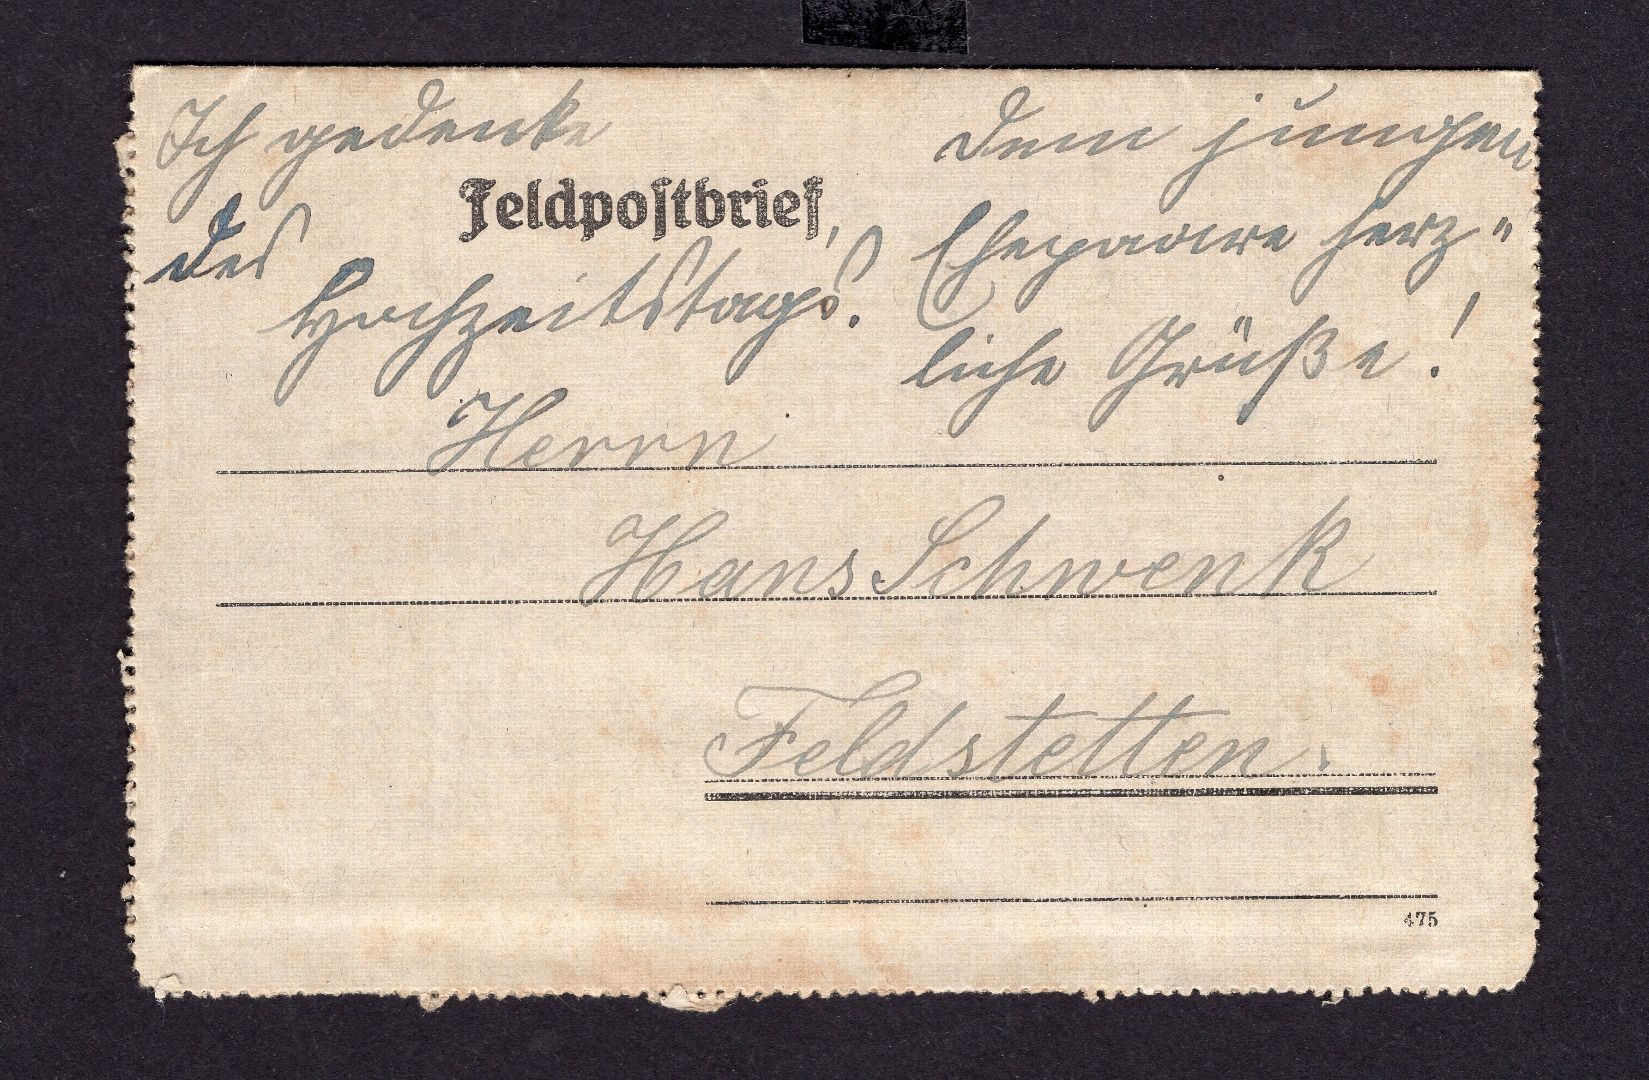 Ich gedenke
des
Hochzeitstags!
dem jungen
Ehepaare herz"
liche Grüße!
Feldpostbrief
Herrn
Hans Schwenk
Feldstetten.
475